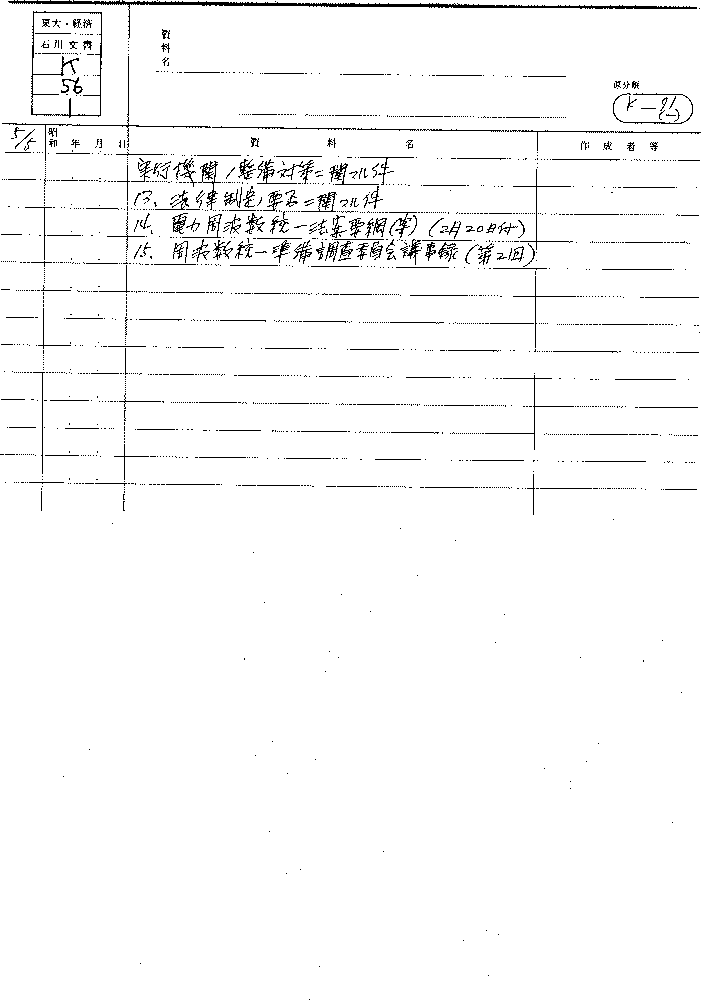 東大・経済
石川文書
K
56
1
資料名
原分類
5/5
昭和 年 月 日
資 料 名
作 成 者 等
実行機関ノ整備対策ニ関スル件
13. 法律制定ノ要否ニ関スル件
14. 電力周波数統一法案要綱(案) (2月20日付)
15. 周波数統一準備調査委員会議事録(第2回)